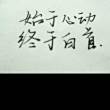 始于心动
终于白首.